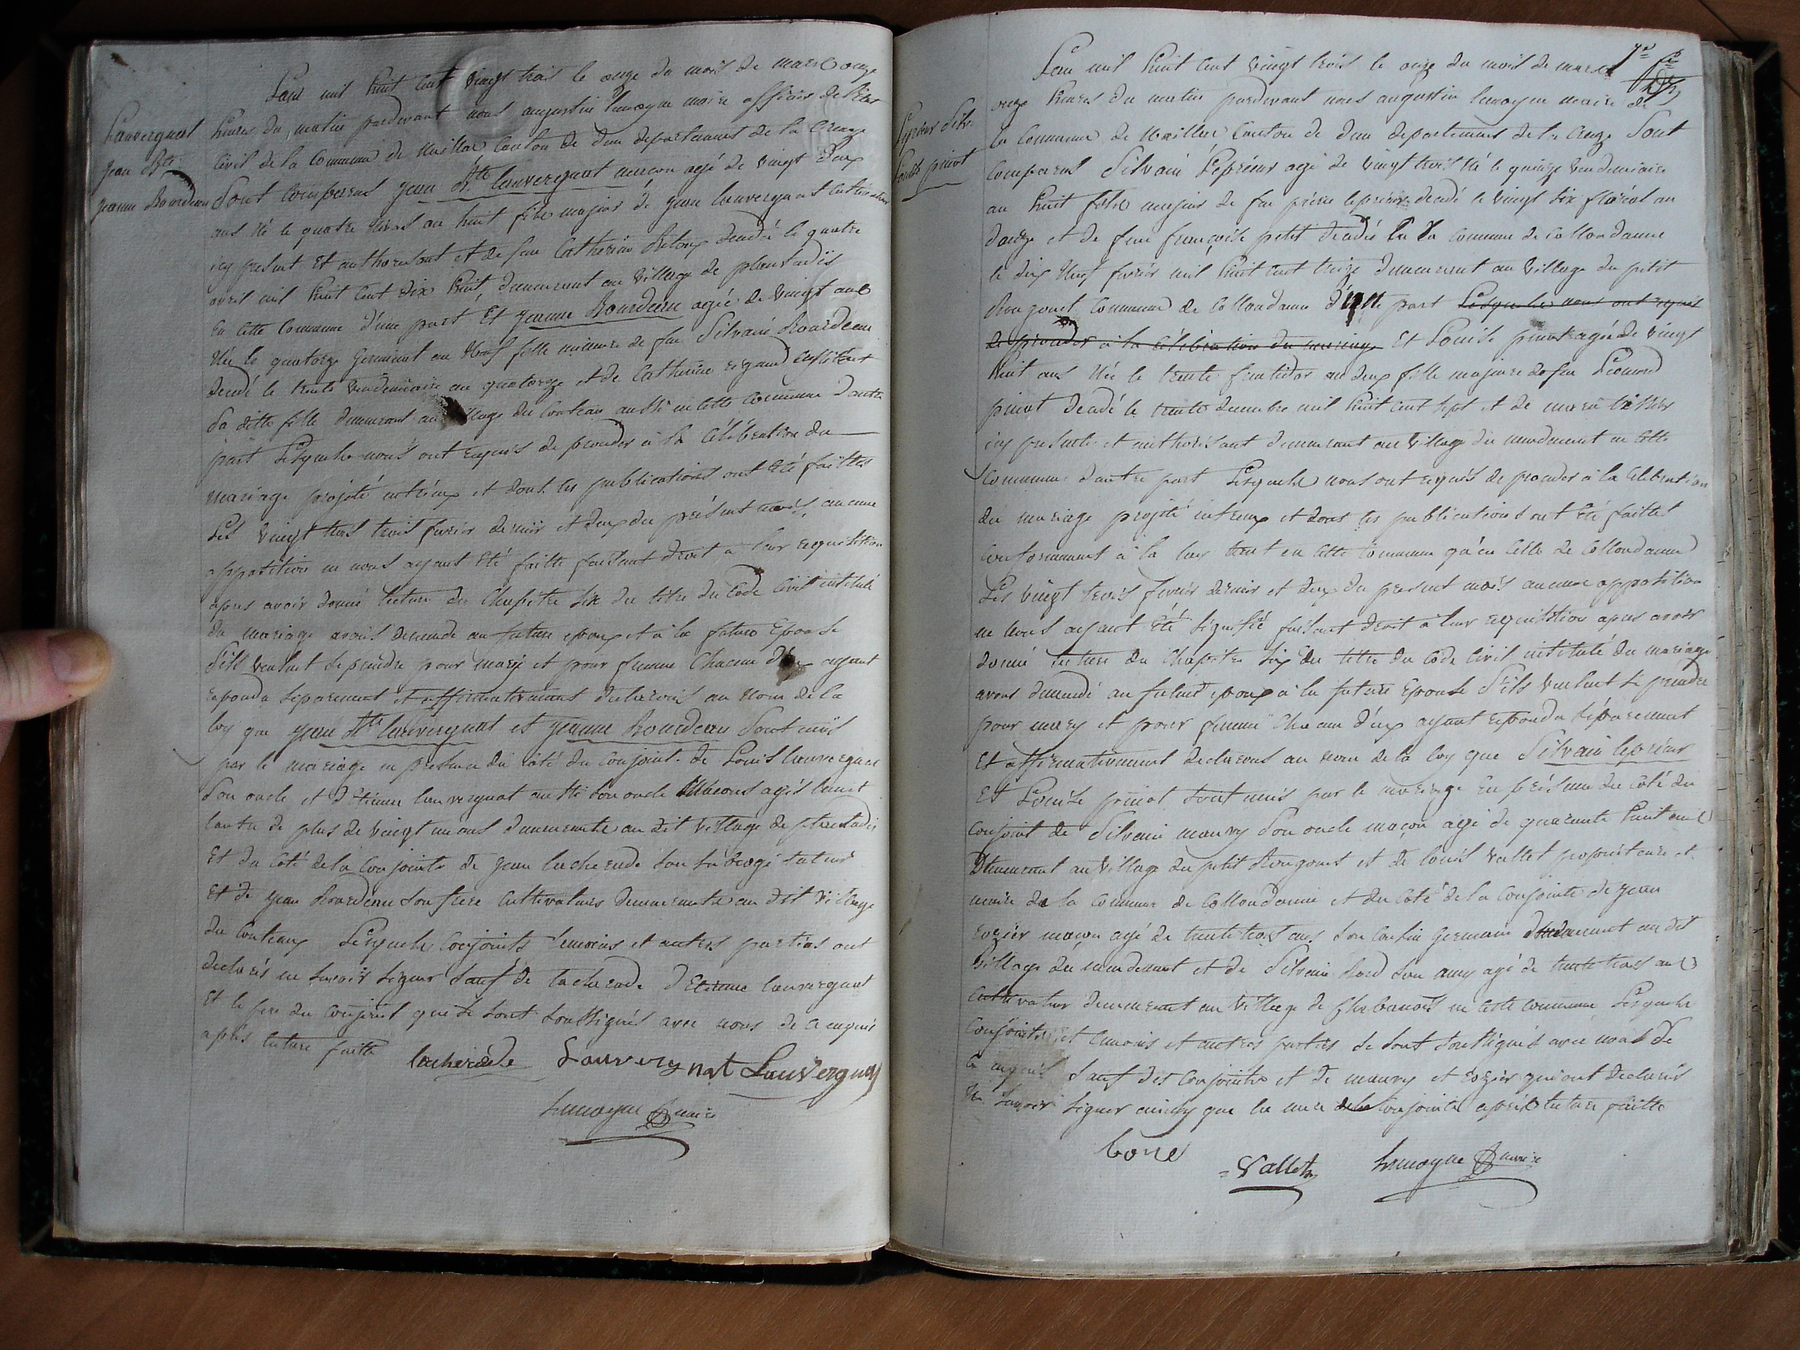 Lauvergnat
jean Bte
jeanne Bourdeau
Lan mil huit cent vingt trois le onze du mois de mars onze
heures du matin pardevant nous augustin lemoyne maire officier de l'état
civil de la commune de Naillac canton de dun departement de la Creuse
Sont comparus jean Bte lauvergnat macon agé de vingt deux
ans né le quatre nivos an huit fils majeur de jean lauvergnat cultivateur
icy present et authorisant et de feu Catherine decedée le quatre
avril mil huit cent dix huit demeurant au village de
en cette commune d'une part Et jeanne Bourdeau agée de vingt ans
Née le quatorze germinal an onze fille mineure de feu Silvain Bourdeau
decedé le trente vendemiaire an quatorze et de Catherine
Sa ditte fille demeurant au village du couteau aussi en cette commune d'autre
part Lesquels nous ont requis de proceder à la célébration du
mariage projeté entreux et dont les publications ont été faittes
Les vingt trois fevrier dernier et deux du présent mois, aucune
opposition ne nous ayant été faitte faisant droit a leur requisition
apres avoir donné lecture du Chapitre six du titre du Code Civil intitulé
du mariage avons demandé au futur epoux et à la future Epouse
S'ils veulent se prendre pour mary et pour femme Chacun d'eux ayant
repondu séparement et affirmativement declarons au nom de la
loy que jean Bte lauvergnat et jeanne Bourdeau Sont unis
par le mariage en presence du coté du conjoint de Louis lauvergnat
Son oncle et d'Etienne lauvergnat aussi son oncle Macons agés l'un et
lautre de plus de vingt un ans demeurants au dit village de
Et du coté de la conjointe de jean lacherade Son subrogé tuteur
et de jean Bourdeau Son frere Cultivateurs demeurants au dit village
du couteau Lesquels conjoints temoins et autres parties ont
declaré ne savoir signer Sauf de lacherade d'Etienne lauvergnat
Et le pere du conjoint qui se sont Soussignés avec nous de ce enquis
après lecture faitte
lacherade Lauvergnat Lauvergnat
Lemoyne maire
Leprieur Silv.
Louise pinot
Lan mil huit cent vingt trois le onze du mois de mars
onze heures du matin pardevant nous augustin lemoyne maire de
la Commune de Naillac Canton de dun departement de la Creuze Sont
comparus Silvain Leprieur agé de vingt trois né le quinze vendemiaire
an huit fils majeur de feu pierre leprieur decedé le vingt six floréal an
douze et de feue françoise petit decedée en la commune de Collondanne
le dix neuf fevrier mil huit cent treize demeurant au village du petit
Rongouet commune de Collondanne d'une part Lesquels nous ont requis
de proceder à la célébration du mariage Et Louise pinot agée de vingt
huit ans Née le trente fructidor an deux fille majeure de feu Léonard
pinot decedé le trente decembre mil huit cent sept et de marie
icy presente et authorisant demeurant au village du mondement en cette
commune d'autre part Lesquels nous ont requis de proceder à la célébration
du mariage projeté entreux et dont les publications ont été faittes
conformement à la loy tant en cette commune qu'en celle de Collondanne
Les vingt trois fevrier dernier et deux du present mois aucune opposition
ne nous ayant été signifié faisant droit a leur requisition apres avoir
donné lecture du Chapitre six du titre du code Civil intitulé du mariage
avons demandé au futur epoux à la future Epouse S'ils veulent se prendre
pour mary et pour femme Chacun d'eux ayant repondu séparement
Et affirmativement declarons au nom de la loy que Silvain leprieur
Et Louise pinot sont unis par le mariage En présence du coté du
conjoint de Silvain maury Son oncle macon agé de quarante huit ans
Demeurant au village du petit Rongouet et de louis Vallet propriétaire et
maire de la commune de Collondanne et du coté de la conjointe de jean
macon agé de trente trois ans Son cousin germain demeurant au dit
Village du mondement et de Silvain Bord Son amy agé de trente trois ans
Cultivateur demeurant au village de en cette commune Lesquels
Conjoints et temoins et autres parties se sont soussignés avec nous de
ce enquis Sauf des conjoints et de maury et qui ont declaré
ne savoir signer ainsy que la mere de la conjointe après lecture faitte
bore Vallet Lemoyne maire